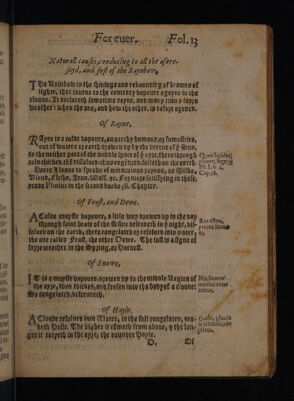 For euer. Fol. 13
Naturall causes, conducing to all the afore-
sayd, and first of the Raynbow.
The Rainbow is the shining and rebounding of beames of
light, that tourne to the contrary vapoure agayne in the
cloude. It declareth sometime rayne, and many times fayre
weather: when the one, and how the other, is before opened.
Of Rayne.
RAyne is a colde vapoure, an earthy humour, or fumosities,
out of waters or earth drawen vp by the vertue of the sunne,
to the neither part of the middle space of the ayre, there through
colde thickned, then dissolued: thus engendred, falleth on the earth.
Here I leaue to speake of miraculous raynes, as Milke,
Bloud, Fleshe, Iron, Woll. &c. For more satisfying in these,
reade Plinius in the second booke 56. Chapter.
Of Frost, and Dewe.
A Colde moyste vapoure, a litle way drawen vp in the day
through faint heate of the descendeth in the night, dis-
solued on the earth, there congelated or resolued into water:
the one called Frost, the other Dewe. The last is a signe of
fayre weather in the Spring, or Haruest.
Of Snowe.
IT is a moyste vapoure, drawen vp to the middle Region of
the ayre, then thicked, and frosen into the body of a cloude:
So congelated, descendeth.
Of Hayle.
A Cloude resolued into Water, in the fall congelated, ma-
keth Hayle. The higher it commeth from aboue, and the lon-
ger it tarieth in the ayre, the rounder Hayle.
D. Of